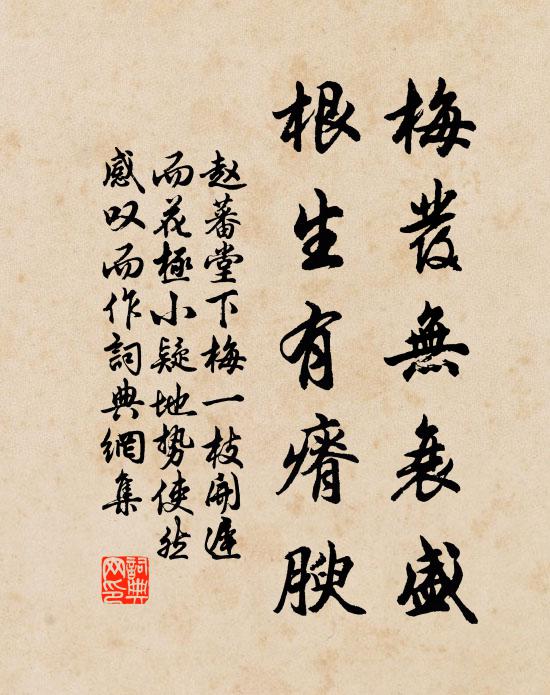 梅發無衰盛
根生有瘠腴
赵蕃堂下梅一枝開遲
而花極小疑地势使然
感叹而作詞典網集
詞典网印